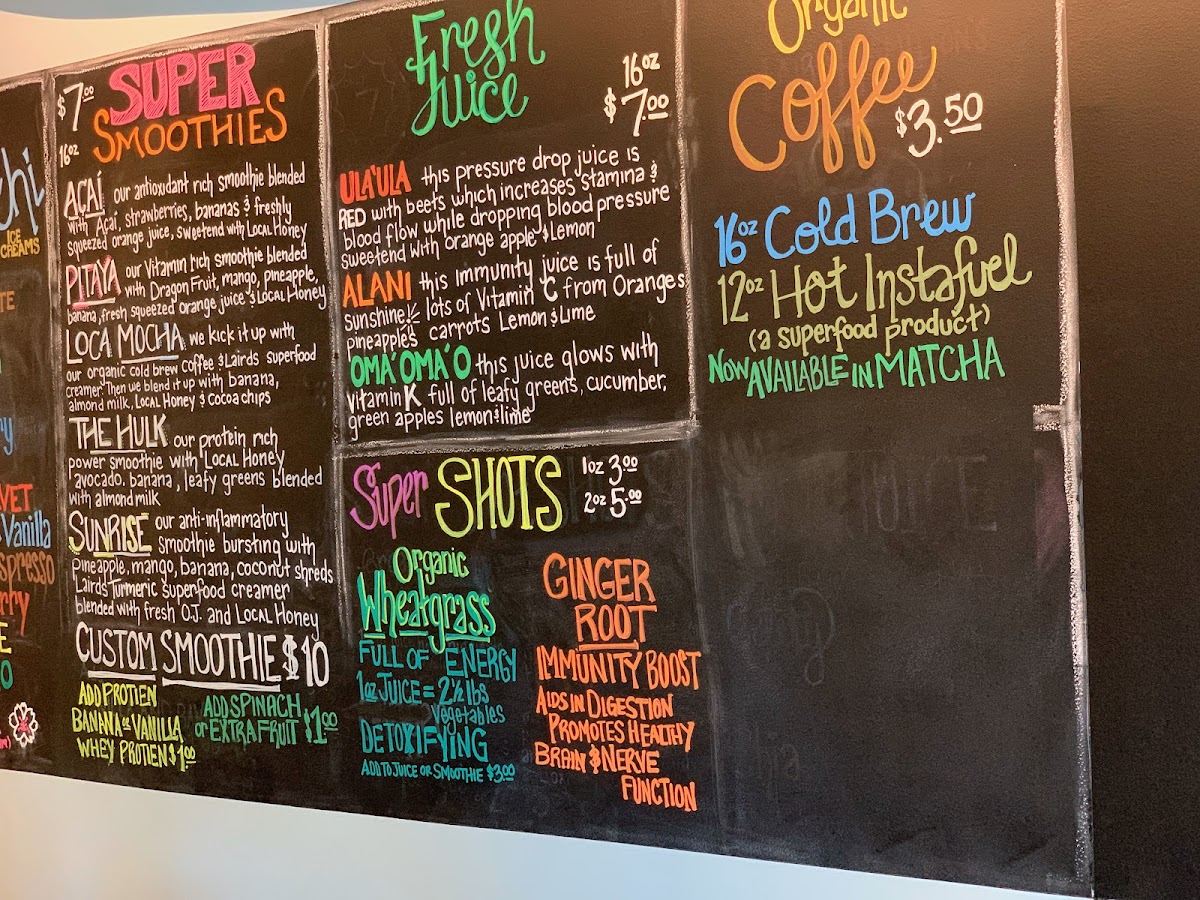 chi
ICE
CREAMS
Vanilla
$7.00
16oz
SUPER
SMOOTHIES
AÇAÍ our antioxidant rich smoothie blended
with Açaí, strawberries, bananas & freshly
squeezed orange juice, sweetend with LOCAL Honey
PITAYA our Vitamin rich smoothie blended
with Dragon Fruit, mango, pineapple,
banana, fresh squeezed orange juice & LOCAL Honey
LOCA MOCHA we kick it up with
our organic cold brew coffee & Lairds superfood
creamer. Then we blend it up with banana,
almond milk, LOCAL Honey & cocoa chips
THE HULK our protein rich
power smoothie with LOCAL Honey
avocado, banana, leafy greens blended
with almond milk
SUNRISE our anti-inflammatory
smoothie bursting with
pineapple, mango, banana, coconut shreds
Lairds Turmeric superfood creamer
blended with fresh O.J. and LOCAL Honey
CUSTOM SMOOTHIE $10
ADD PROTIEN
BANANA or VANILLA
WHEY PROTIEN $1.00
ADD SPINACH
or EXTRA FRUIT $1.00
Fresh
Juice
16oz
$7.00
ULA'ULA this pressure drop juice is
RED with beets which increases stamina &
blood flow while dropping blood pressure
sweetend with orange apple & Lemon
ALANI this immunity juice is full of
sunshine! lots of Vitamin C from Oranges
pineapples carrots Lemon & Lime
OMA'OMA'O this juice glows with
vitamin K full of leafy greens, cucumber,
green apples lemon & lime
Super SHOTS
1oz 3.00
2oz 5.00
Organic
Wheatgrass
FULL OF ENERGY
1oz JUICE = 2½ lbs
Vegetables
DETOXIFYING
ADD TO JUICE OR SMOOTHIE $3.00
GINGER
ROOT
IMMUNITY BOOST
AIDS IN DIGESTION
PROMOTES HEALTHY
BRAIN & NERVE
FUNCTION
Organic
Coffee
$3.50
16oz Cold Brew
12oz Hot Instafuel
(a superfood product)
NOW AVAILABLE IN MATCHA